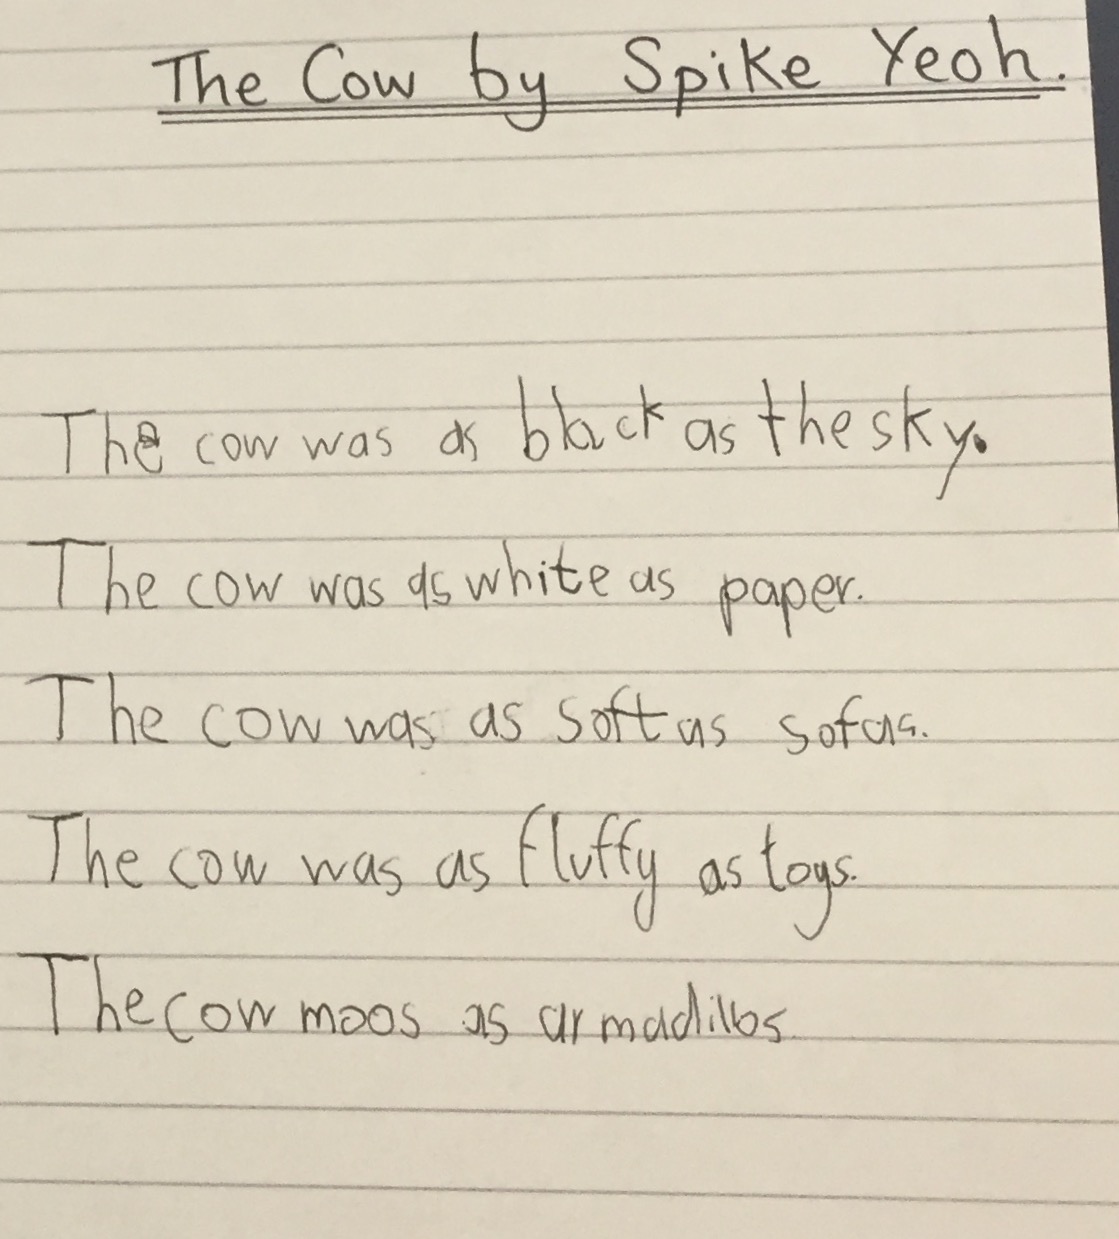 The Cow by Spike Yeoh.
The cow was as black as the sky.
The cow was as white as paper.
The cow was as soft as sofas.
The cow was as fluffy as toys.
The cow moos as armadillos.